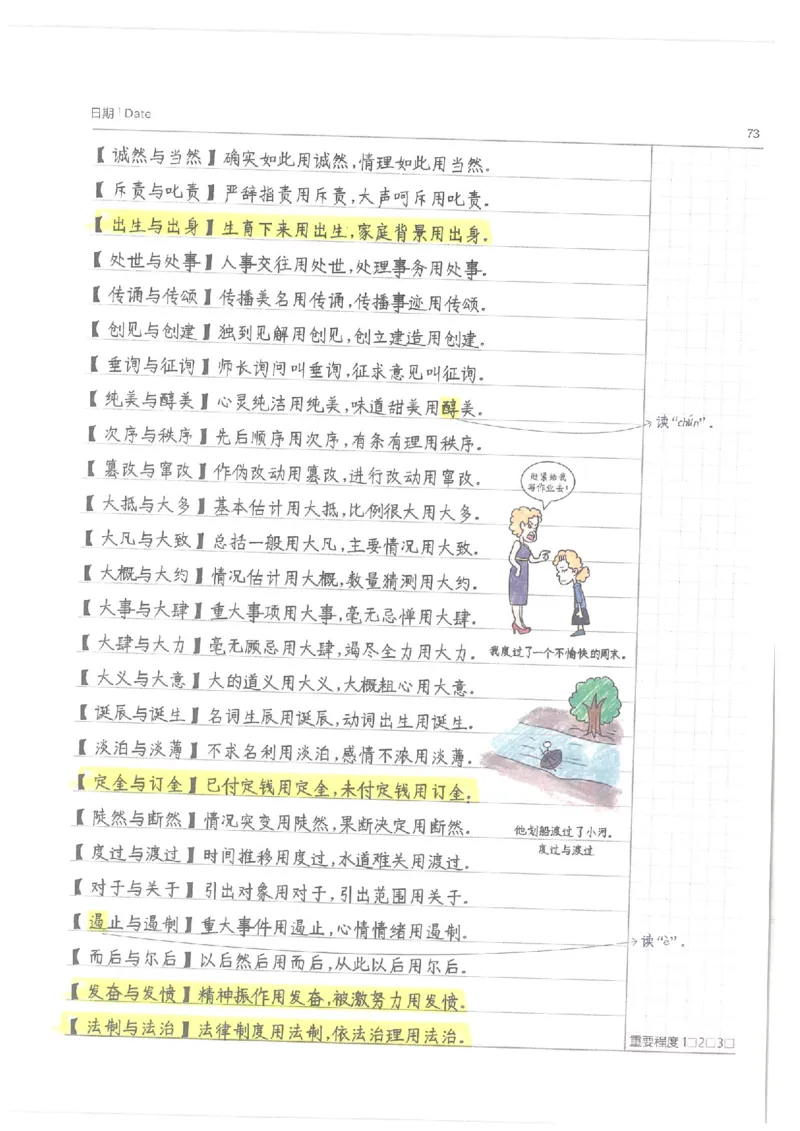 日期 | Date
73
【诚然与当然】确实如此用诚然,情理如此用当然。
【斥责与叱责】严辞指责用斥责,大声呵斥用叱责。
【出生与出身】生育下来用出生,家庭背景用出身。
【处世与处事】人事交往用处世,处理事务用处事。
【传诵与传颂】传播美名用传诵,传播事迹用传颂。
【创见与创建】独到见解用创见,创立建造用创建。
【垂询与征询】师长询问叫垂询,征求意见叫征询。
【纯美与醇美】心灵纯洁用纯美,味道甜美用醇美。
读“chún”。
【次序与秩序】先后顺序用次序,有条有理用秩序。
【篡改与窜改】作伪改动用篡改,进行改动用窜改。
赶紧给我
写作业去!
【大抵与大多】基本估计用大抵,比例很大用大多。
【大凡与大致】总括一般用大凡,主要情况用大致。
【大概与大约】情况估计用大概,数量猜测用大约。
【大事与大肆】重大事项用大事,毫无忌惮用大肆。
【大肆与大力】毫无顾忌用大肆,竭尽全力用大力。
我度过了一个不愉快的周末。
【大义与大意】大的道义用大义,大概粗心用大意。
【诞辰与诞生】名词生辰用诞辰,动词出生用诞生。
【淡泊与淡薄】不求名利用淡泊,感情不浓用淡薄。
【定金与订金】已付定钱用定金,未付定钱用订金。
【陡然与断然】情况突变用陡然,果断决定用断然。
他划船渡过了小河。
度过与渡过
【度过与渡过】时间推移用度过,水道难关用渡过。
【对于与关于】引出对象用对于,引出范围用关于。
【遏止与遏制】重大事件用遏止,心情情绪用遏制。
读“è”。
【而后与尔后】以后然后用而后,从此以后用尔后。
【发奋与发愤】精神振作用发奋,被激努力用发愤。
【法制与法治】法律制度用法制,依法治理用法治。
重要程度 1□2□3□